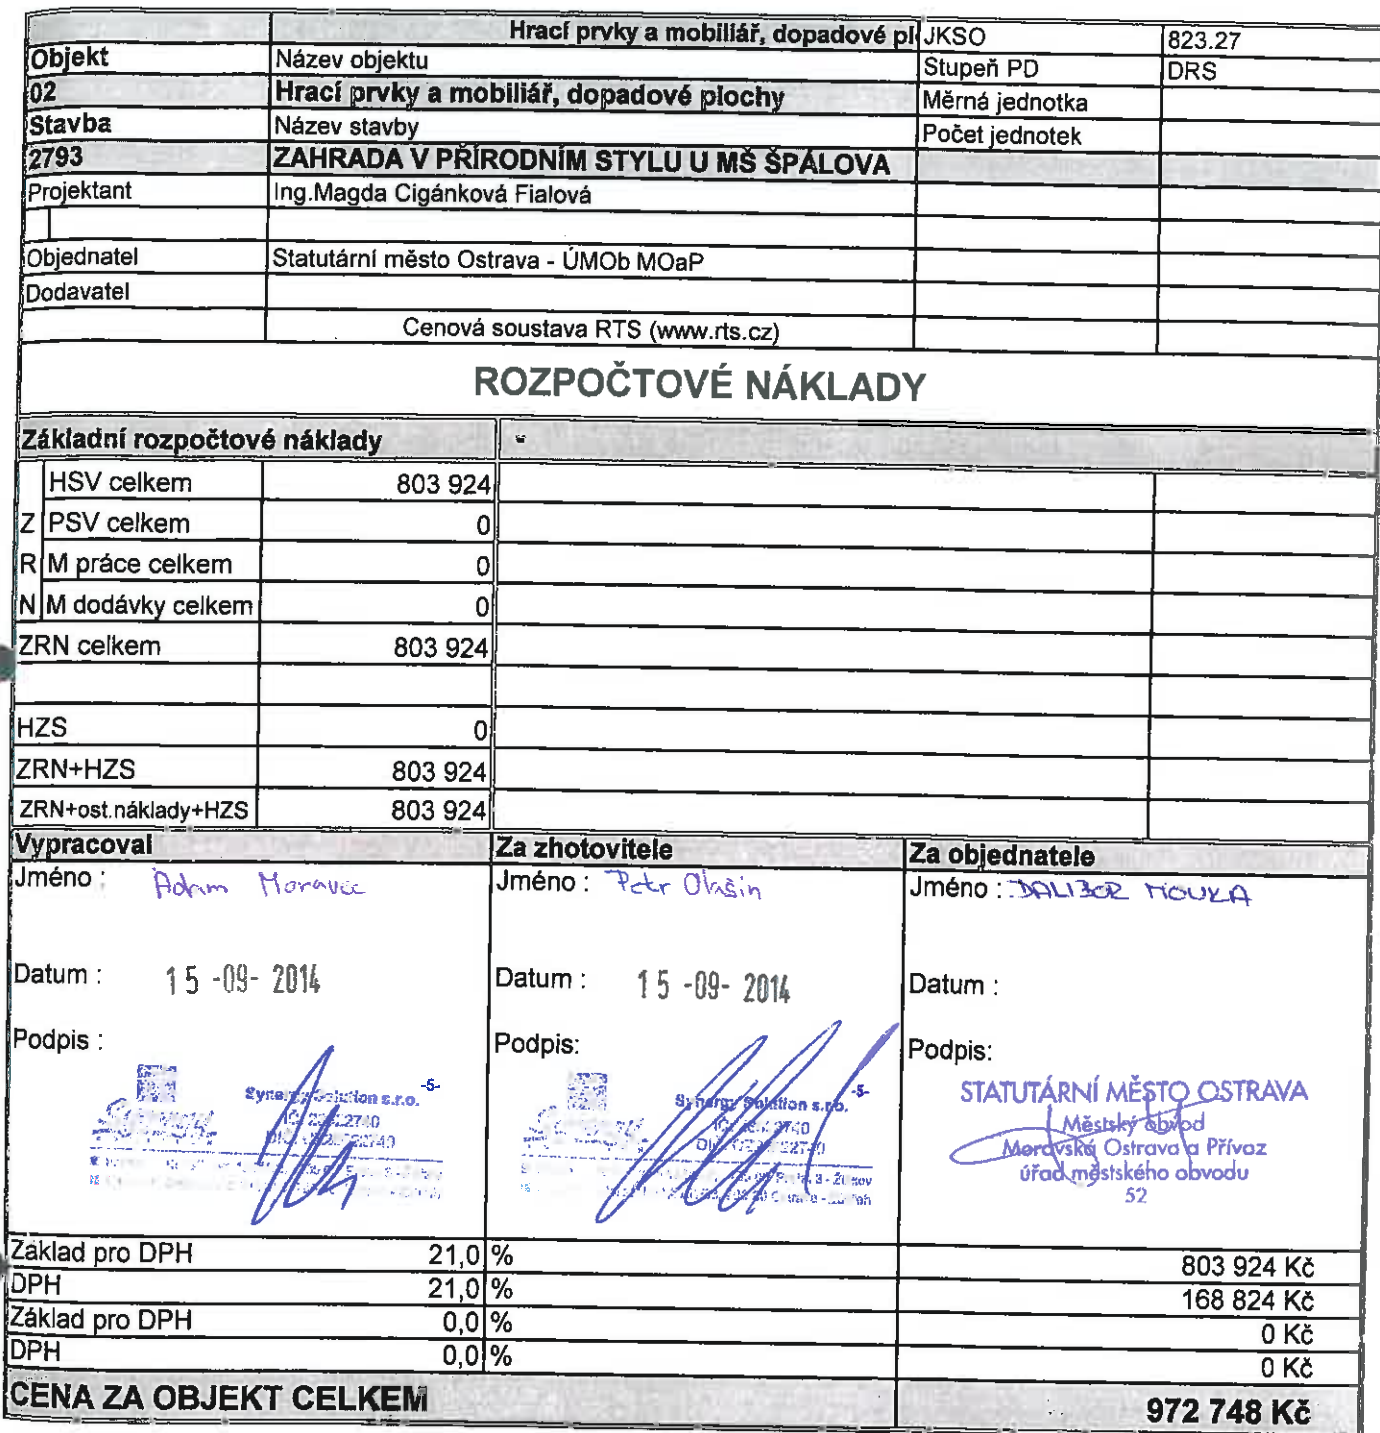 Hrací prvky a mobiliář, dopadové pl JKSO 823.27
Objekt Název objektu Stupeň PD DRS
02 Hrací prvky a mobiliář, dopadové plochy Měrná jednotka
Stavba Název stavby Počet jednotek
2793 ZAHRADA V PŘÍRODNÍM STYLU U MŠ ŠPÁLOVA
Projektant Ing.Magda Cigánková Fialová
Objednatel Statutární město Ostrava - ÚMOb MOaP
Dodavatel
Cenová soustava RTS (www.rts.cz)
ROZPOČTOVÉ NÁKLADY
Základní rozpočtové náklady
HSV celkem 803 924
Z PSV celkem 0
R M práce celkem 0
N M dodávky celkem 0
ZRN celkem 803 924
HZS 0
ZRN+HZS 803 924
ZRN+ost.náklady+HZS 803 924
Vypracoval Za zhotovitele Za objednatele
Jméno : Adam Moravec Jméno : Petr Olašin Jméno : DALIBOR MOUKA
Datum : 15 -09- 2014 Datum : 15 -09- 2014 Datum :
Podpis : Podpis: Podpis:
-5-
Synergy Solution s.r.o.
-5-
Synergy Solution s.r.o.
STATUTÁRNÍ MĚSTO OSTRAVA
Městský obvod
Moravská Ostrava a Přívoz
úřad městského obvodu
52
Základ pro DPH 21,0 % 803 924 Kč
DPH 21,0 % 168 824 Kč
Základ pro DPH 0,0 % 0 Kč
DPH 0,0 % 0 Kč
CENA ZA OBJEKT CELKEM 972 748 Kč